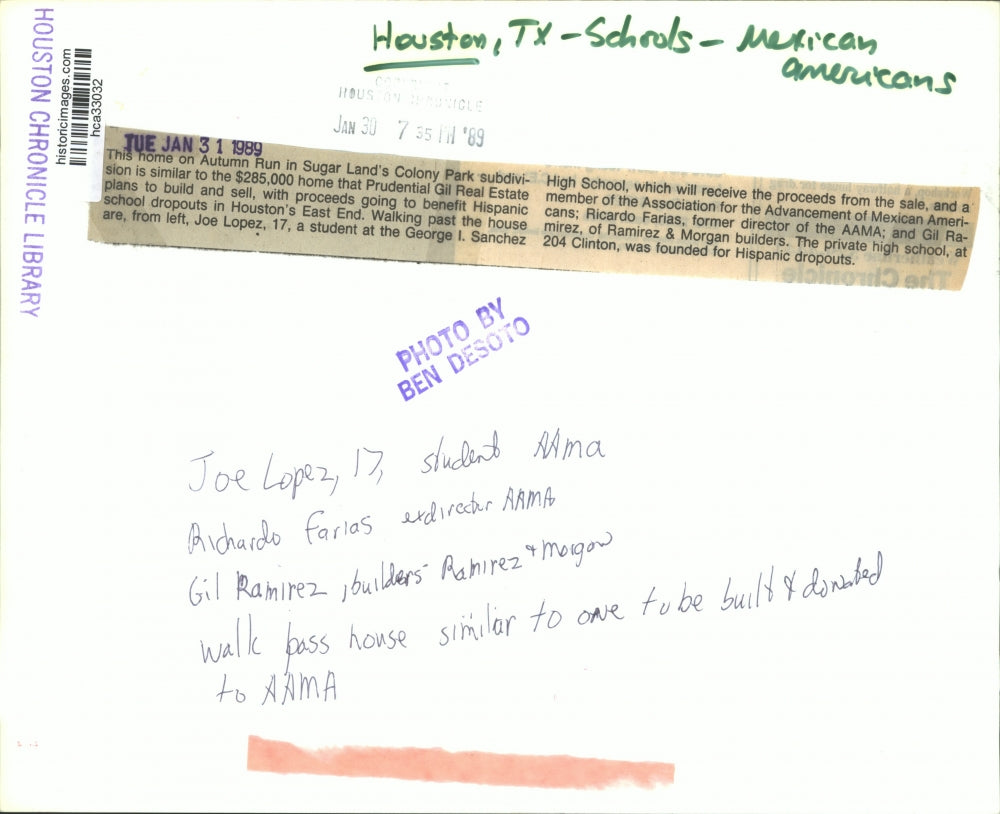 Houston, TX - Schools - Mexican
Americans
HOUSTON CHRONICLE LIBRARY
historicimages.com
hca33032
COPYRIGHT
HOUSTON CHRONICLE
JAN 30 7 35 PM '89
TUE JAN 31 1989
This home on Autumn Run in Sugar Land's Colony Park subdivi-
sion is similar to the $285,000 home that Prudential Gil Real Estate
plans to build and sell, with proceeds going to benefit Hispanic
school dropouts in Houston's East End. Walking past the house
are, from left, Joe Lopez, 17, a student at the George I. Sanchez
High School, which will receive the proceeds from the sale, and a
member of the Association for the Advancement of Mexican Ameri-
cans; Ricardo Farias, former director of the AAMA; and Gil Ra-
mirez, of Ramirez & Morgan builders. The private high school, at
204 Clinton, was founded for Hispanic dropouts.
The Chronicle
PHOTO BY
BEN DESOTO
Joe Lopez, 17, student AAMA
Richardo Farias exdirector AAMA
Gil Ramirez, builders Ramirez & Morgan
walk pass house similar to one to be built & donated
to AAMA